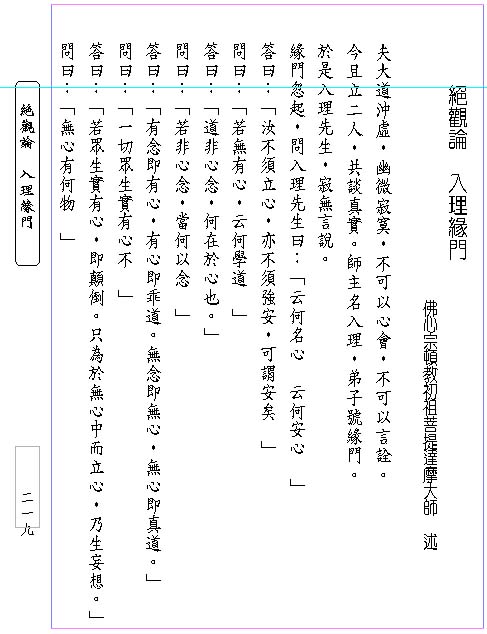 絕觀論　入理緣門
佛心宗頓教初祖菩提達摩大師　述
夫大道沖虛，幽微寂寞，不可以心會，不可以言詮。
今且立二人，共談真實。師主名入理，弟子號緣門。
於是入理先生，寂無言說。
緣門忽起，問入理先生曰：「云何名心　云何安心　」
答曰：「汝不須立心，亦不須強安，可謂安矣　」
問曰：「若無有心，云何學道　」
答曰：「道非心念，何在於心也。」
問曰：「若非心念，當何以念　」
答曰：「有念即有心，有心即乖道。無念即無心，無心即真道。」
問曰：「一切眾生實有心不　」
答曰：「若眾生實有心，即顛倒。只為於無心中而立心，乃生妄想。」
問曰：「無心有何物　」
絕觀論　入理緣門
二一九